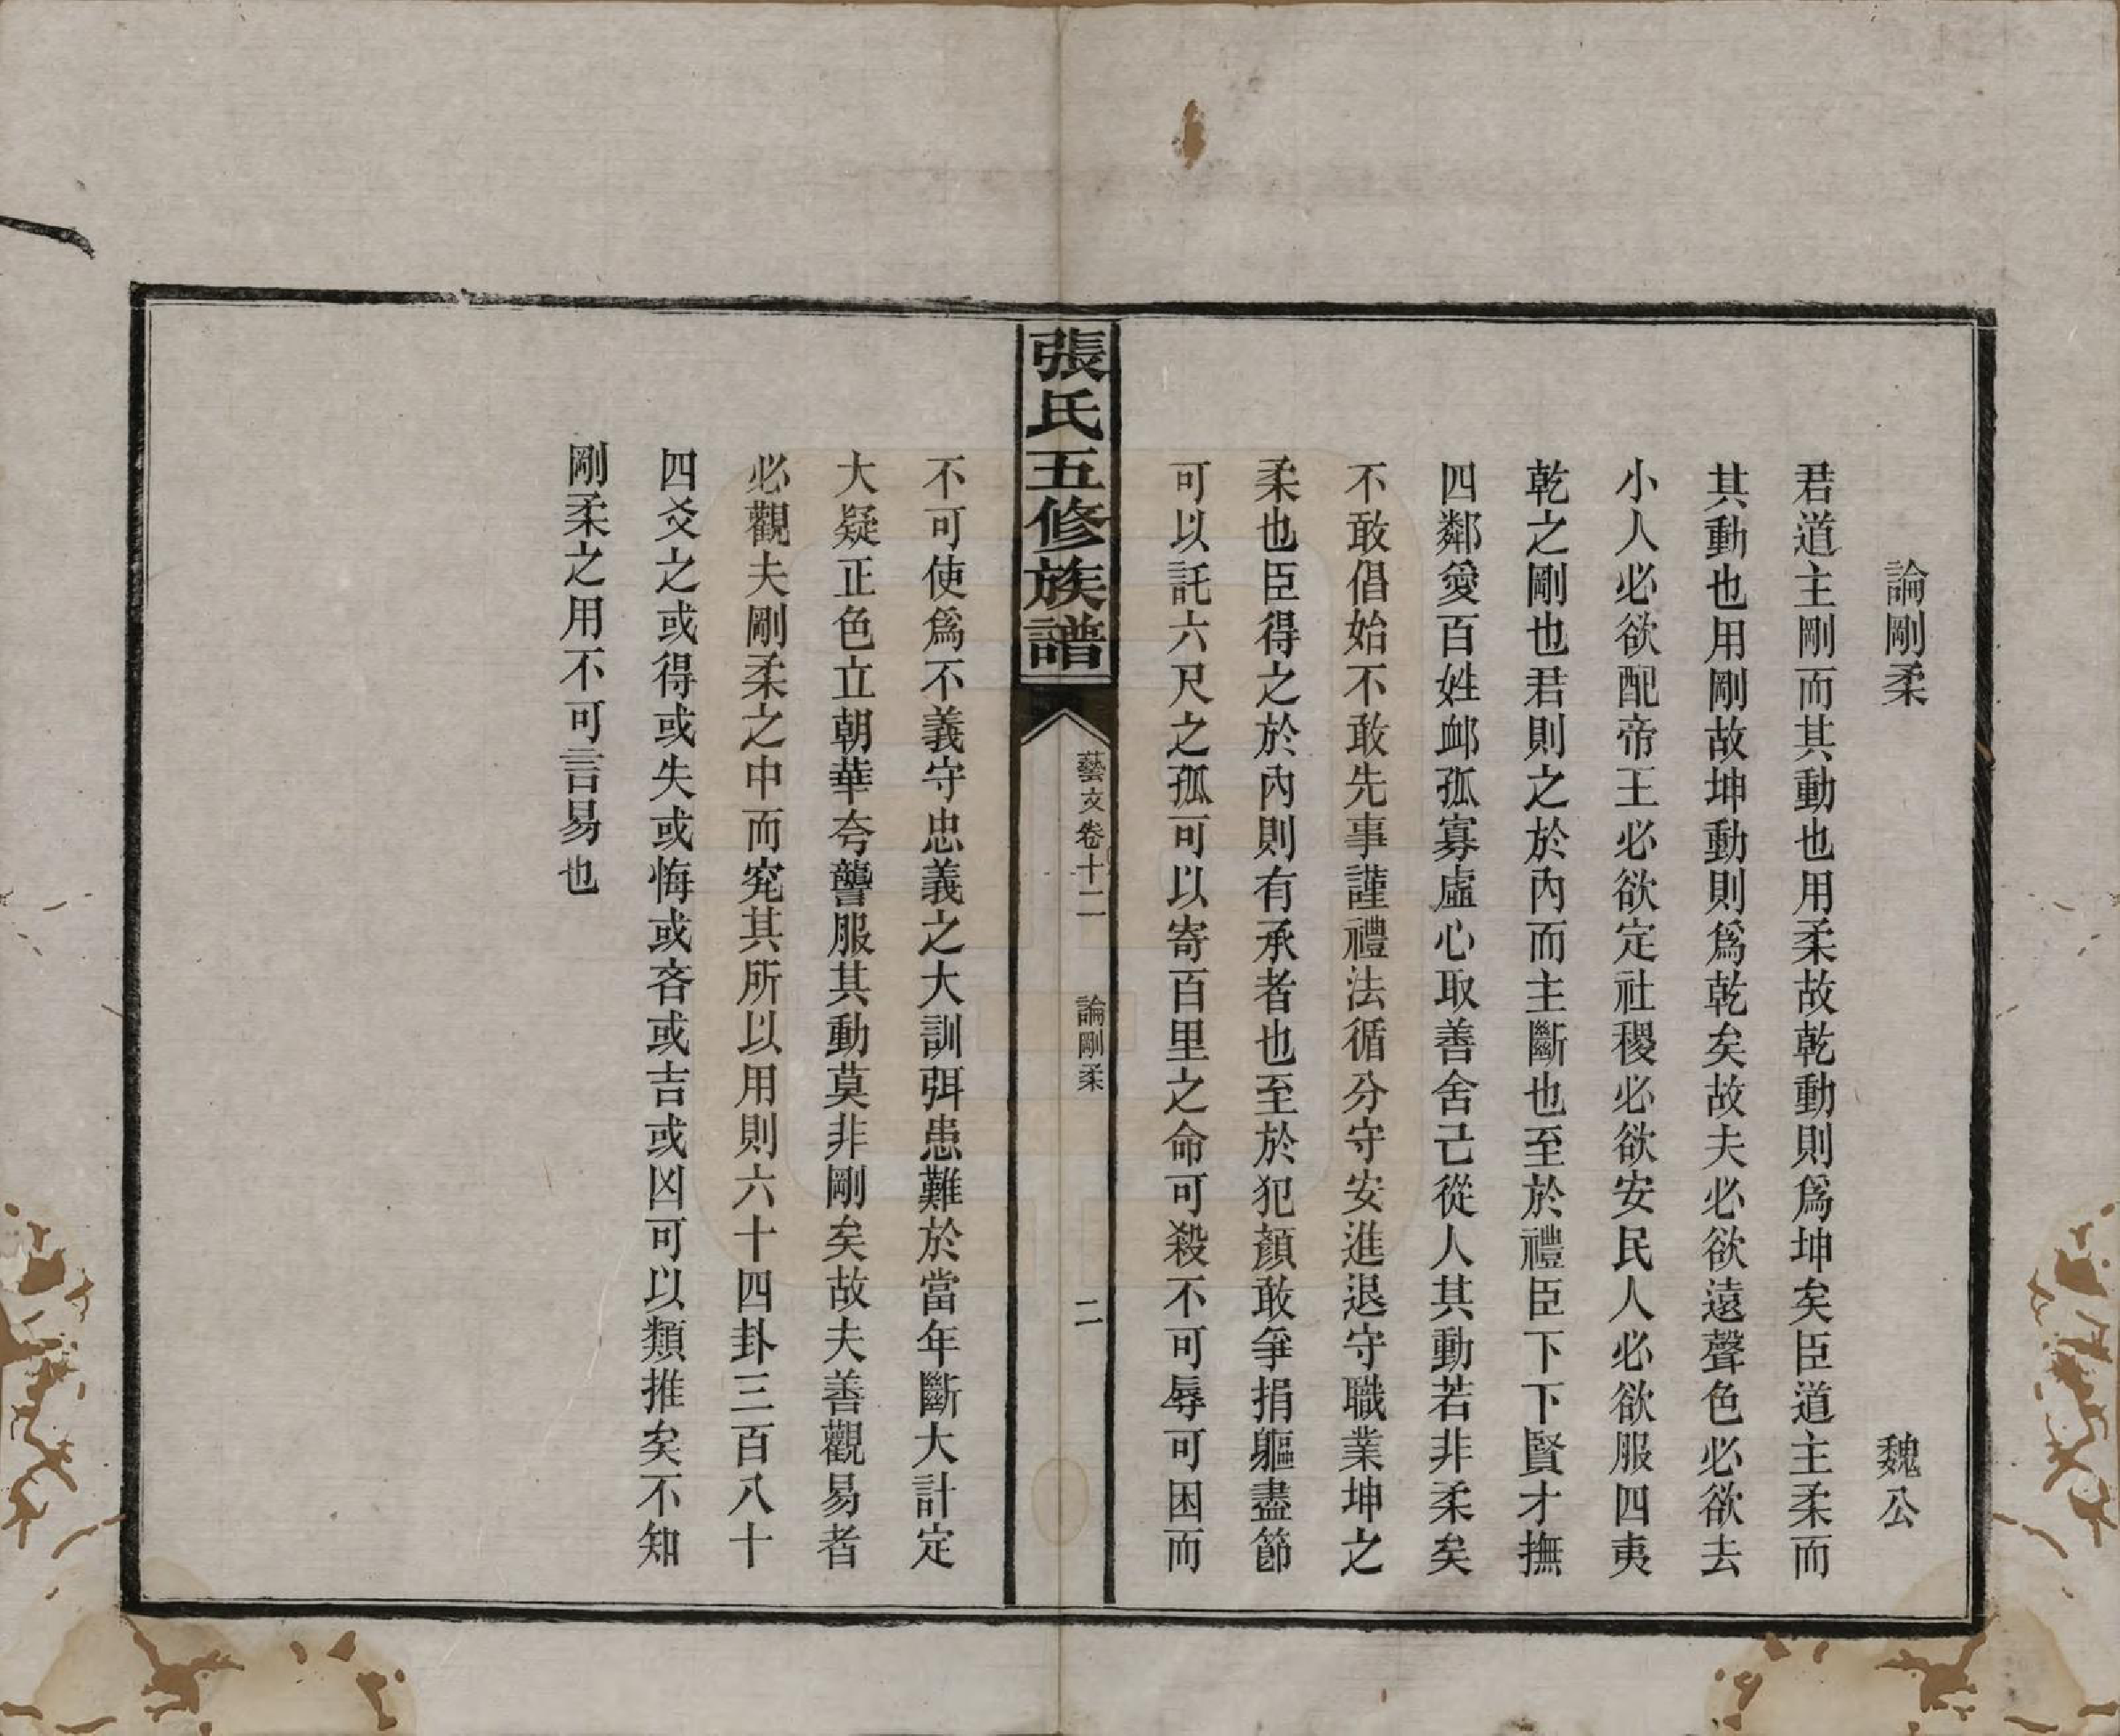 論剛柔　魏公
君道主剛而其動也用柔故乾動則爲坤矣臣道主柔而
其動也用剛故坤動則爲乾矣故夫必欲遠聲色必欲去
小人必欲配帝王必欲定社稷必欲安民人必欲服四夷
乾之剛也君則之於內而主斷也至於禮臣下下賢才撫
四鄰愛百姓衈孤寡虛心取善舍己從人其動若非柔矣
不敢倡始不敢先事謹禮法循分守安進退守職業坤之
柔也臣得之於內則有承者也至於犯顏敢爭捐軀盡節
可以託六尺之孤可以寄百里之命可殺不可辱可困而
張氏五修族譜
藝文卷十二　論剛柔　二
不可使爲不義守忠義之大訓弭患難於當年斷大計定
大疑正色立朝華夸讋服其動莫非剛矣故夫善觀易者
必觀夫剛柔之中而究其所以用則六十四卦三百八十
四爻之或得或失或悔或吝或吉或凶可以類推矣不知
剛柔之用不可言易也